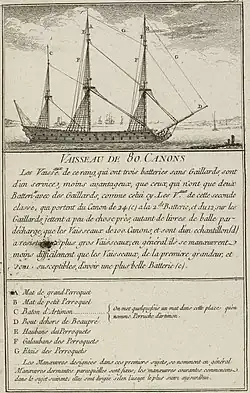 VAISSEAU DE 80 CANONS
Les Vaisse. de ce rang, qui ont trois batteries sans Gaillards, sont
d'un service, moins avantageux, que ceux, qui n'ont que deux
Batteries avec des Gaillards, comme celui cy. Les V. de cette seconde
classe, qui portent du Canon de 24 (c) a la 2 de Batterie, et du 12 sur les
Gaillards, jettent a peu de chose près, autant de livres de balle par
décharge, que les Vaisseaux de 100 Canons, et sont d'un echantillon (d)
a plus gros Vaisseaux; en général ils se manœuvrent
moins difficilement que les Vaisseaux, de la premiere grandeur, et
sont susceptibles, d'avoir une plus belle Batterie (e).
A Mat de grand Perroquet
B Mat de petit Perroquet
C Baton d'Artimon
On met quelquefois un mat dans cette place, qu'on
nomme, Perruche d'artimon.
D Bout dehors de Beaupré
E Haubans du Perroquets
F Galaubans des Perroquets
G Etais des Perroquets
Les Manœuvres designées dans ces premiers sujets, se nomment en général
Manœuvres dormantes parcequ'elles sont fixes; les manœuvres courantes commencent
dans le sujet suivant; elles sont dirigées selon l'usage le plus suivi aujourdhui.